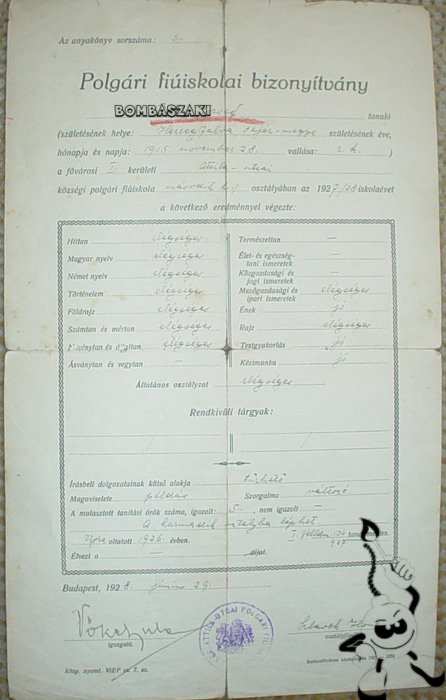 Az anyakönyv sorszáma:
Polgári fiúiskolai bizonyítvány
BOMBASZAKI tanuló
(születésének helye: megye születésének éve,
hónapja és napja: 1915. november 28. vallása:
a fővárosi I. kerületi Attila-utcai
községi polgári fiúiskola második osztályában az 1927/28 iskolaévet
a következő eredménnyel végezte:
Hittan elégséges
Magyar nyelv elégséges
Német nyelv elégséges
Történelem elégséges
Földrajz elégséges
Számtan és mértan elégséges
Növénytan és állattan elégséges
Ásványtan és vegytan
Természettan —
Élet- és egészség-
tani ismeretek —
Közgazdasági és
jogi ismeretek —
Mezőgazdasági és
ipari ismeretek elégséges
Ének jó
Rajz elégséges
Testgyakorlás jó
Kézimunka jó
Általános osztályzat elégséges
Rendkívüli tárgyak:
Írásbeli dolgozatainak külső alakja tűrhető
Magaviselete példás Szorgalma változó
A mulasztott tanítási órák száma, igazolt: 5 -, nem igazolt —
A harmadik osztályba léphet.
Újra oltatott 1926 évben.
Élvezi a — díjat.
Budapest, 1928. június 29.
igazgató.
ATTILA-UTCAI POLGÁRI